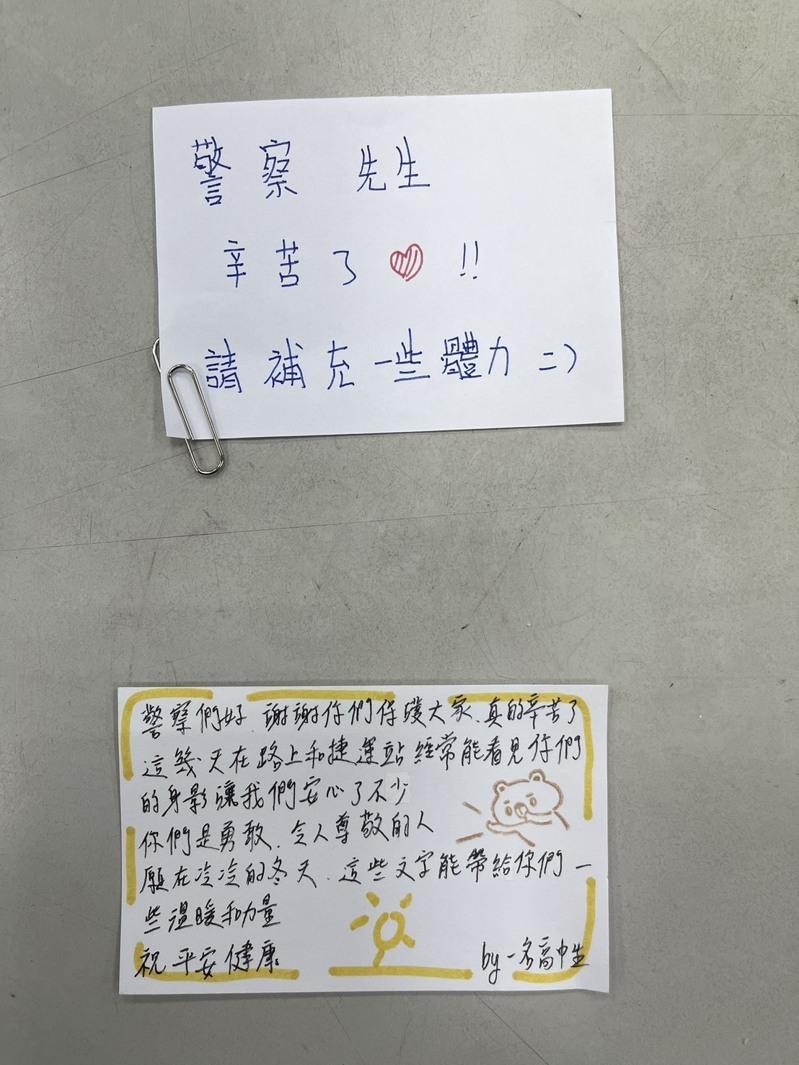 警察 先生
辛苦了♥!!
請補充一些體力 =)
警察們好、謝謝你們保護大家、真的辛苦了
這幾天在路上和捷運站經常能看見你們
的身影讓我們安心了不少
你們是勇敢、令人尊敬的人
願在冷冷的冬天、這些文字能帶給你們一
些溫暖和力量
祝平安健康
by 一名高中生